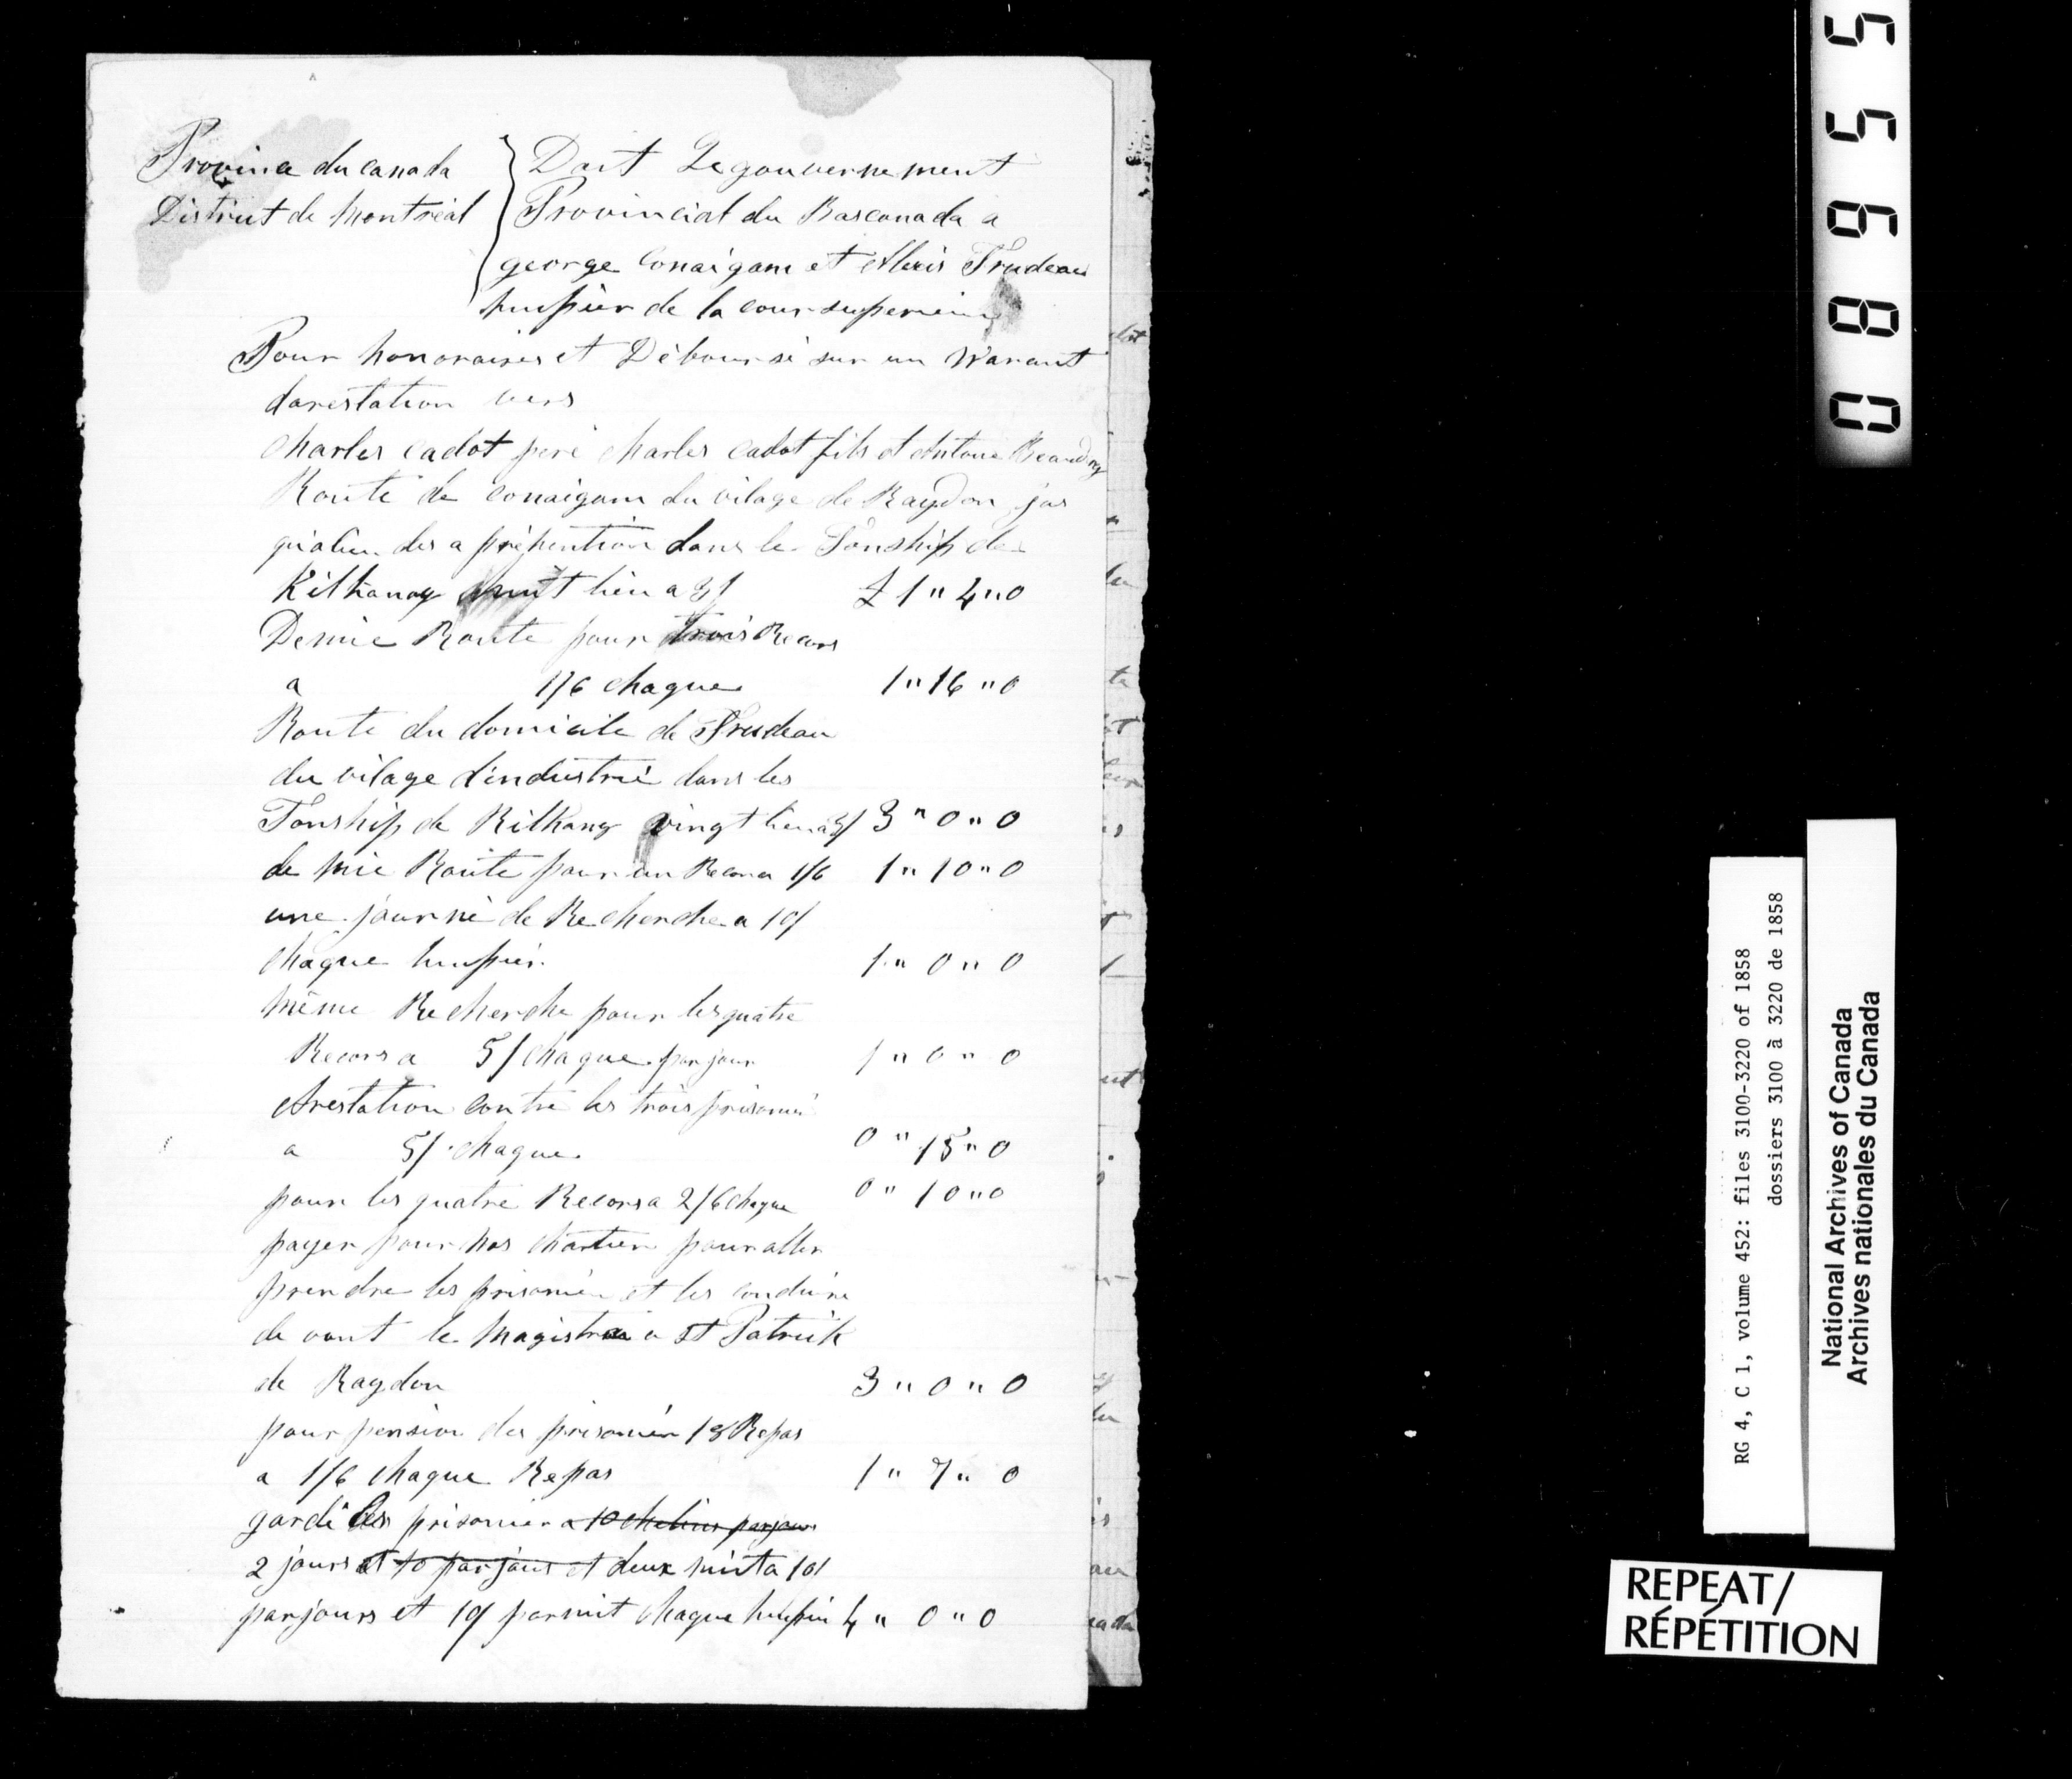 Province du Canada
District de Montréal
Doit Le gouvernement
Provincial du Bascanada a
george Conaigam et Alexis Trudeau
huissier de la cour superieure
Pour honoraires et Déboursé sur un Warant
darestation vers
Charles Cadot peré Charles Cadot fils et Antoine Beaudry
Route de Conaigam du vilage de Raydon jus
qualieu des a préhention dans le Tonship de
Kilkanay huit lieu a 3/ £ 1 " 4 " 0
Demie Route pour trois Recors
a 1/6 chaque 1 " 16 " 0
Route du domicile de Trudeau
du vilage d'industrié dans les
Tonship de Kilkany vingt lieu a 3/ 3 " 0 " 0
de mie Route pour un Recor a 1/6 1 " 10 " 0
une journé de Recherche a 10/
chaque huissier 1 " 0 " 0
même Recherche pour les quatre
Recors a 5/ chaque par jour 1 " 0 " 0
Arestation contre les trois prisonié
a 5/ chaque 0 " 15 " 0
pour les quatre Recors a 2/6 chaque 0 " 10 " 0
payer pour nos chartier pour aller
prendre les prisonier et les conduire
de vant le Magistra a St Patrick
de Raydon 3 " 0 " 0
pour pension des prisonier 18 Repas
a 1/6 chaque Repas 1 " 7 " 0
gardé les prisonier a 10 chelins par jour
2 jours et 10 par jour et deux nuit a 10/
par jours et 10/ par nuit chaque huissier 4 " 0 " 0
0 8 9 5 5
RG 4, C 1, volume 452: files 3100-3220 of 1858
dossiers 3100 à 3220 de 1858
National Archives of Canada
Archives nationales du Canada
REPEAT/
RÉPÉTITION